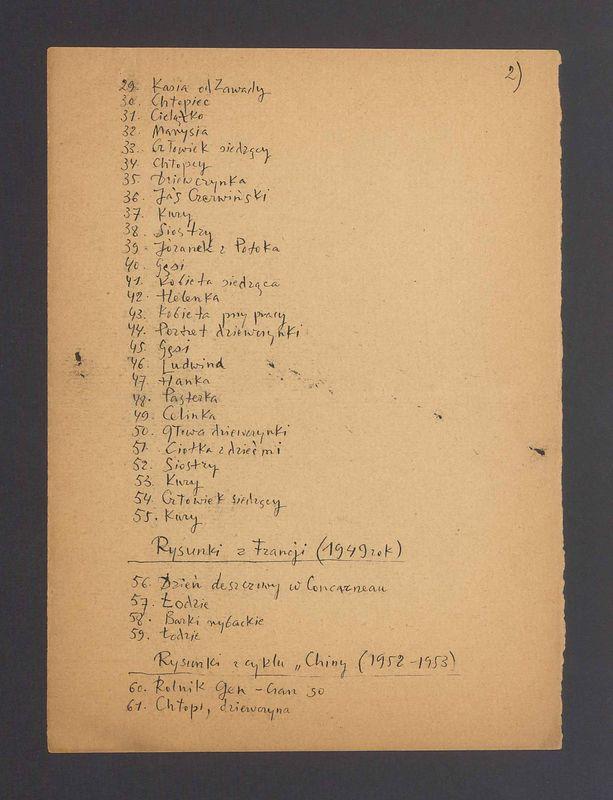 2)
29. Kasia od Zawady
30. Chłopiec
31. Cielątko
32. Marysia
33. Człowiek siedzący
34. Chłopcy
35. Dziewczynka
36. Jaś Czerwiński
37. Kury
38. Siostry
39. Józanek z Potoka
40. Gęsi
41. Kobieta siedząca
42. Helenka
43. Kobieta przy pracy
44. Portret dziewczynki
45. Gęsi
46. Ludwind
47. Hanka
48. Pasterka
49. Celinka
50. Głowa dziewczynki
51. Ciotka z dziećmi
52. Siostry
53. Kury
54. Człowiek siedzący
55. Kury
Rysunki z Francji (1949 rok)
56. Dzień deszczowy w Concarneau
57. Łodzie
58. Barki rybackie
59. Łodzie
Rysunki z cyklu „Chiny (1952-1953)
60. Rolnik Gen-
61. Chłopi, dziewczyna